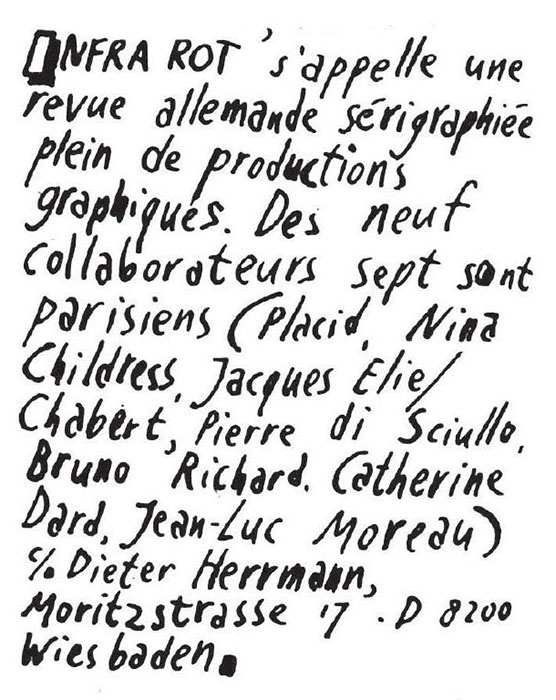 INFRA ROT s'appelle une
revue allemande sérigraphiée
plein de productions
graphiques. Des neuf
collaborateurs sept sont
parisiens (Placid, Nina
Childress, Jacques Elie/
Chabert, Pierre di Sciullo,
Bruno Richard. Catherine
Dard, Jean-Luc Moreau)
c/o Dieter Herrmann,
Moritzstrasse 17 . D 8200
Wiesbaden.